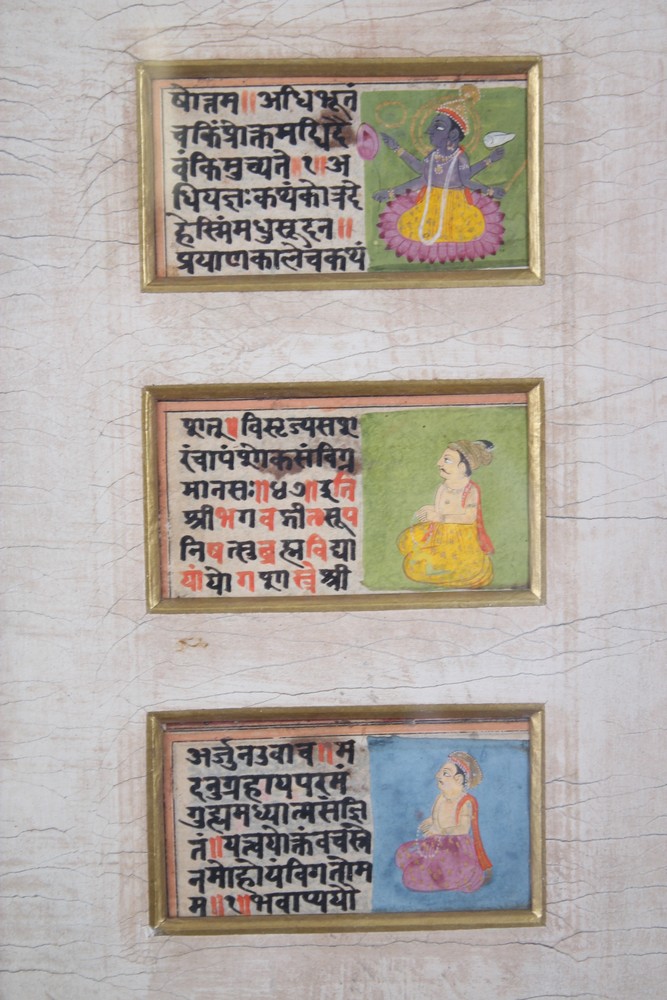 षोत्तम॥अधिभूतं
चकिंप्रोक्तमधिदै
वंकिमुच्यते॥१॥अ
धियज्ञःकथंकोत्रदे
हेस्मिंमधुसूदन॥
प्रयाणकालेचकथं
शत्॥विसृज्यसश
रंचापंशोकसंविग्न
मानसः॥४७॥इति
श्रीभगवद्गीतासूप
निषत्सुब्रह्मविद्या
यांयोगशास्त्रेश्री
अर्जुनउवाच॥म
दनुग्रहायपरमं
गुह्यमध्यात्मसंज्ञि
तं॥यत्त्वयोक्तंवचस्ते
नमोहोयंविगतोम
म॥१॥भवाप्ययौ